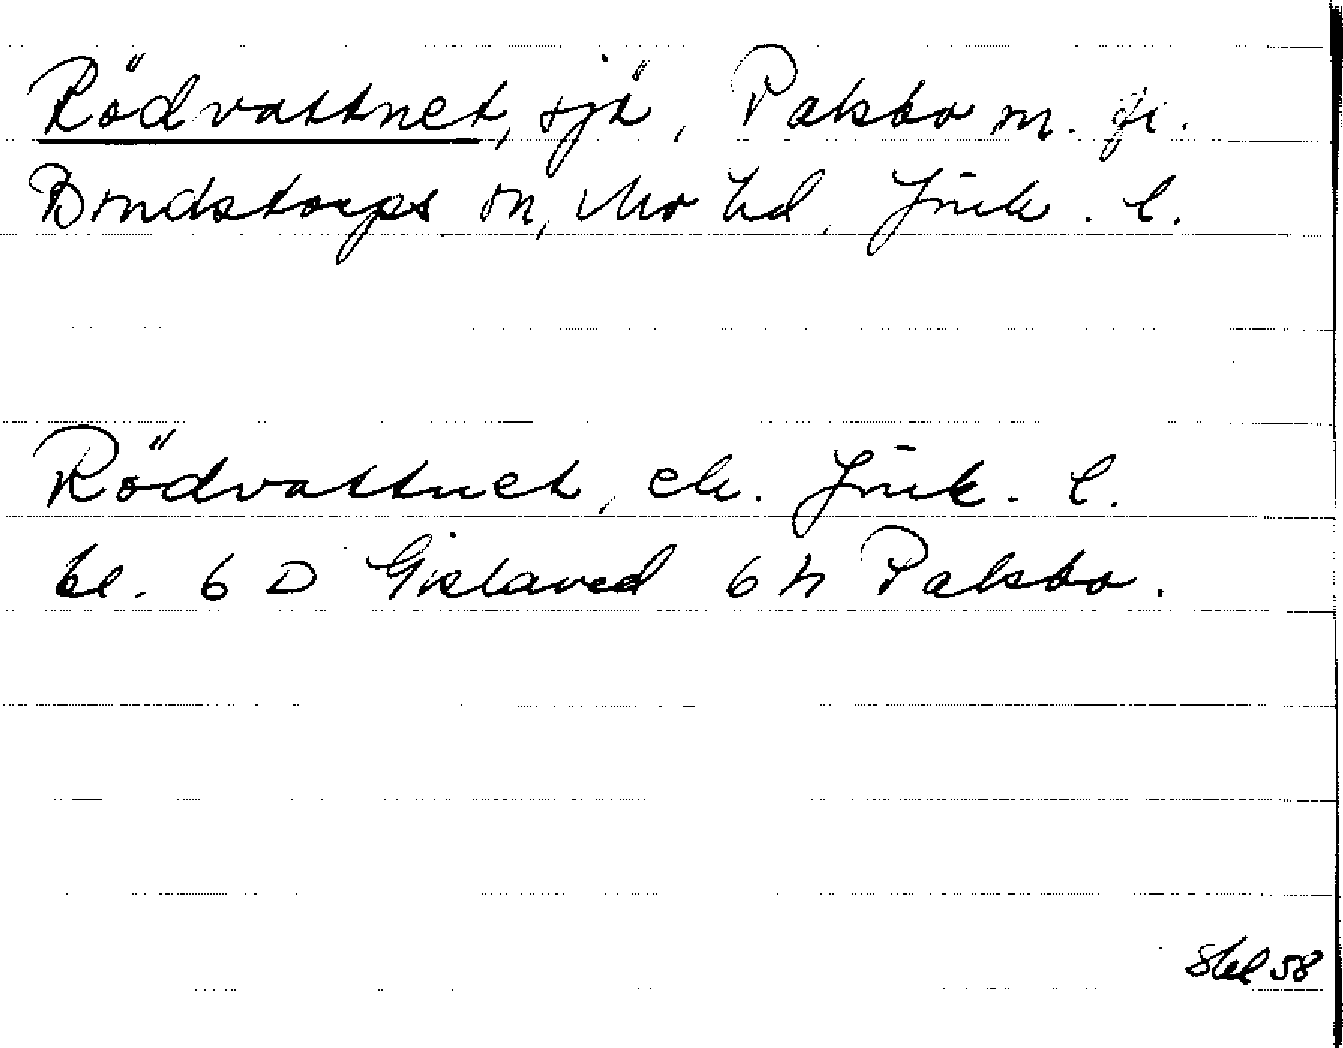 Rödvattnet, sjö, Paksbo m. fl.
Bondstorps sn, Mo hd, Jönk. l.
Rödvattnet, ek. Jönk. l.
bl. 6 D Gislaved 6 h Paksbo.
Skl 58